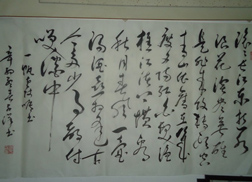 滚滚長江東逝水
浪花淘盡英雄
是非成敗轉頭空
青山依舊在幾
度夕陽紅白髮漁
樵江渚上慣看
秋月春風一壺
濁酒喜相逢古
今多少事都付
笑談中